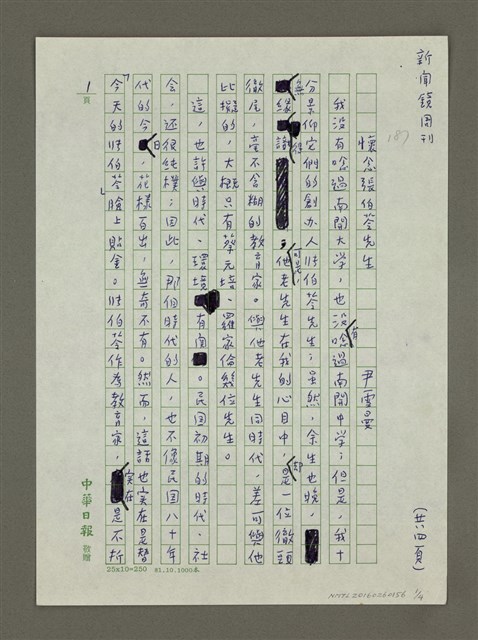 新聞鏡周刊
187
(共四頁)
懷念張伯苓先生　尹雪曼
我沒有唸過南開大學，也沒有唸過南開中學；但是，我十
分景仰它們的創辦人張伯苓先生；虽然，余生也晚，
無緣得識；可是，他老先生在我的心目中，却是一位徹頭
徹尾，毫不含糊的教育家。與他老先生同時代，差可與他
比擬的，大概只有蔡元培、羅家倫幾位先生。
這，也許與時代、環境有関。民国初期的時代、社
会，还很純樸；因此，那個時代的人，也不像民国八十年
代的今日，花樣百出，無奇不有。然而，這話也实在是替
今天的「張伯苓」臉上貼金。張伯苓作為教育家，实在是不折
1
頁
中華日報
敬贈
25x10=250
81.10.1000本
NMTL20160260156 1/4